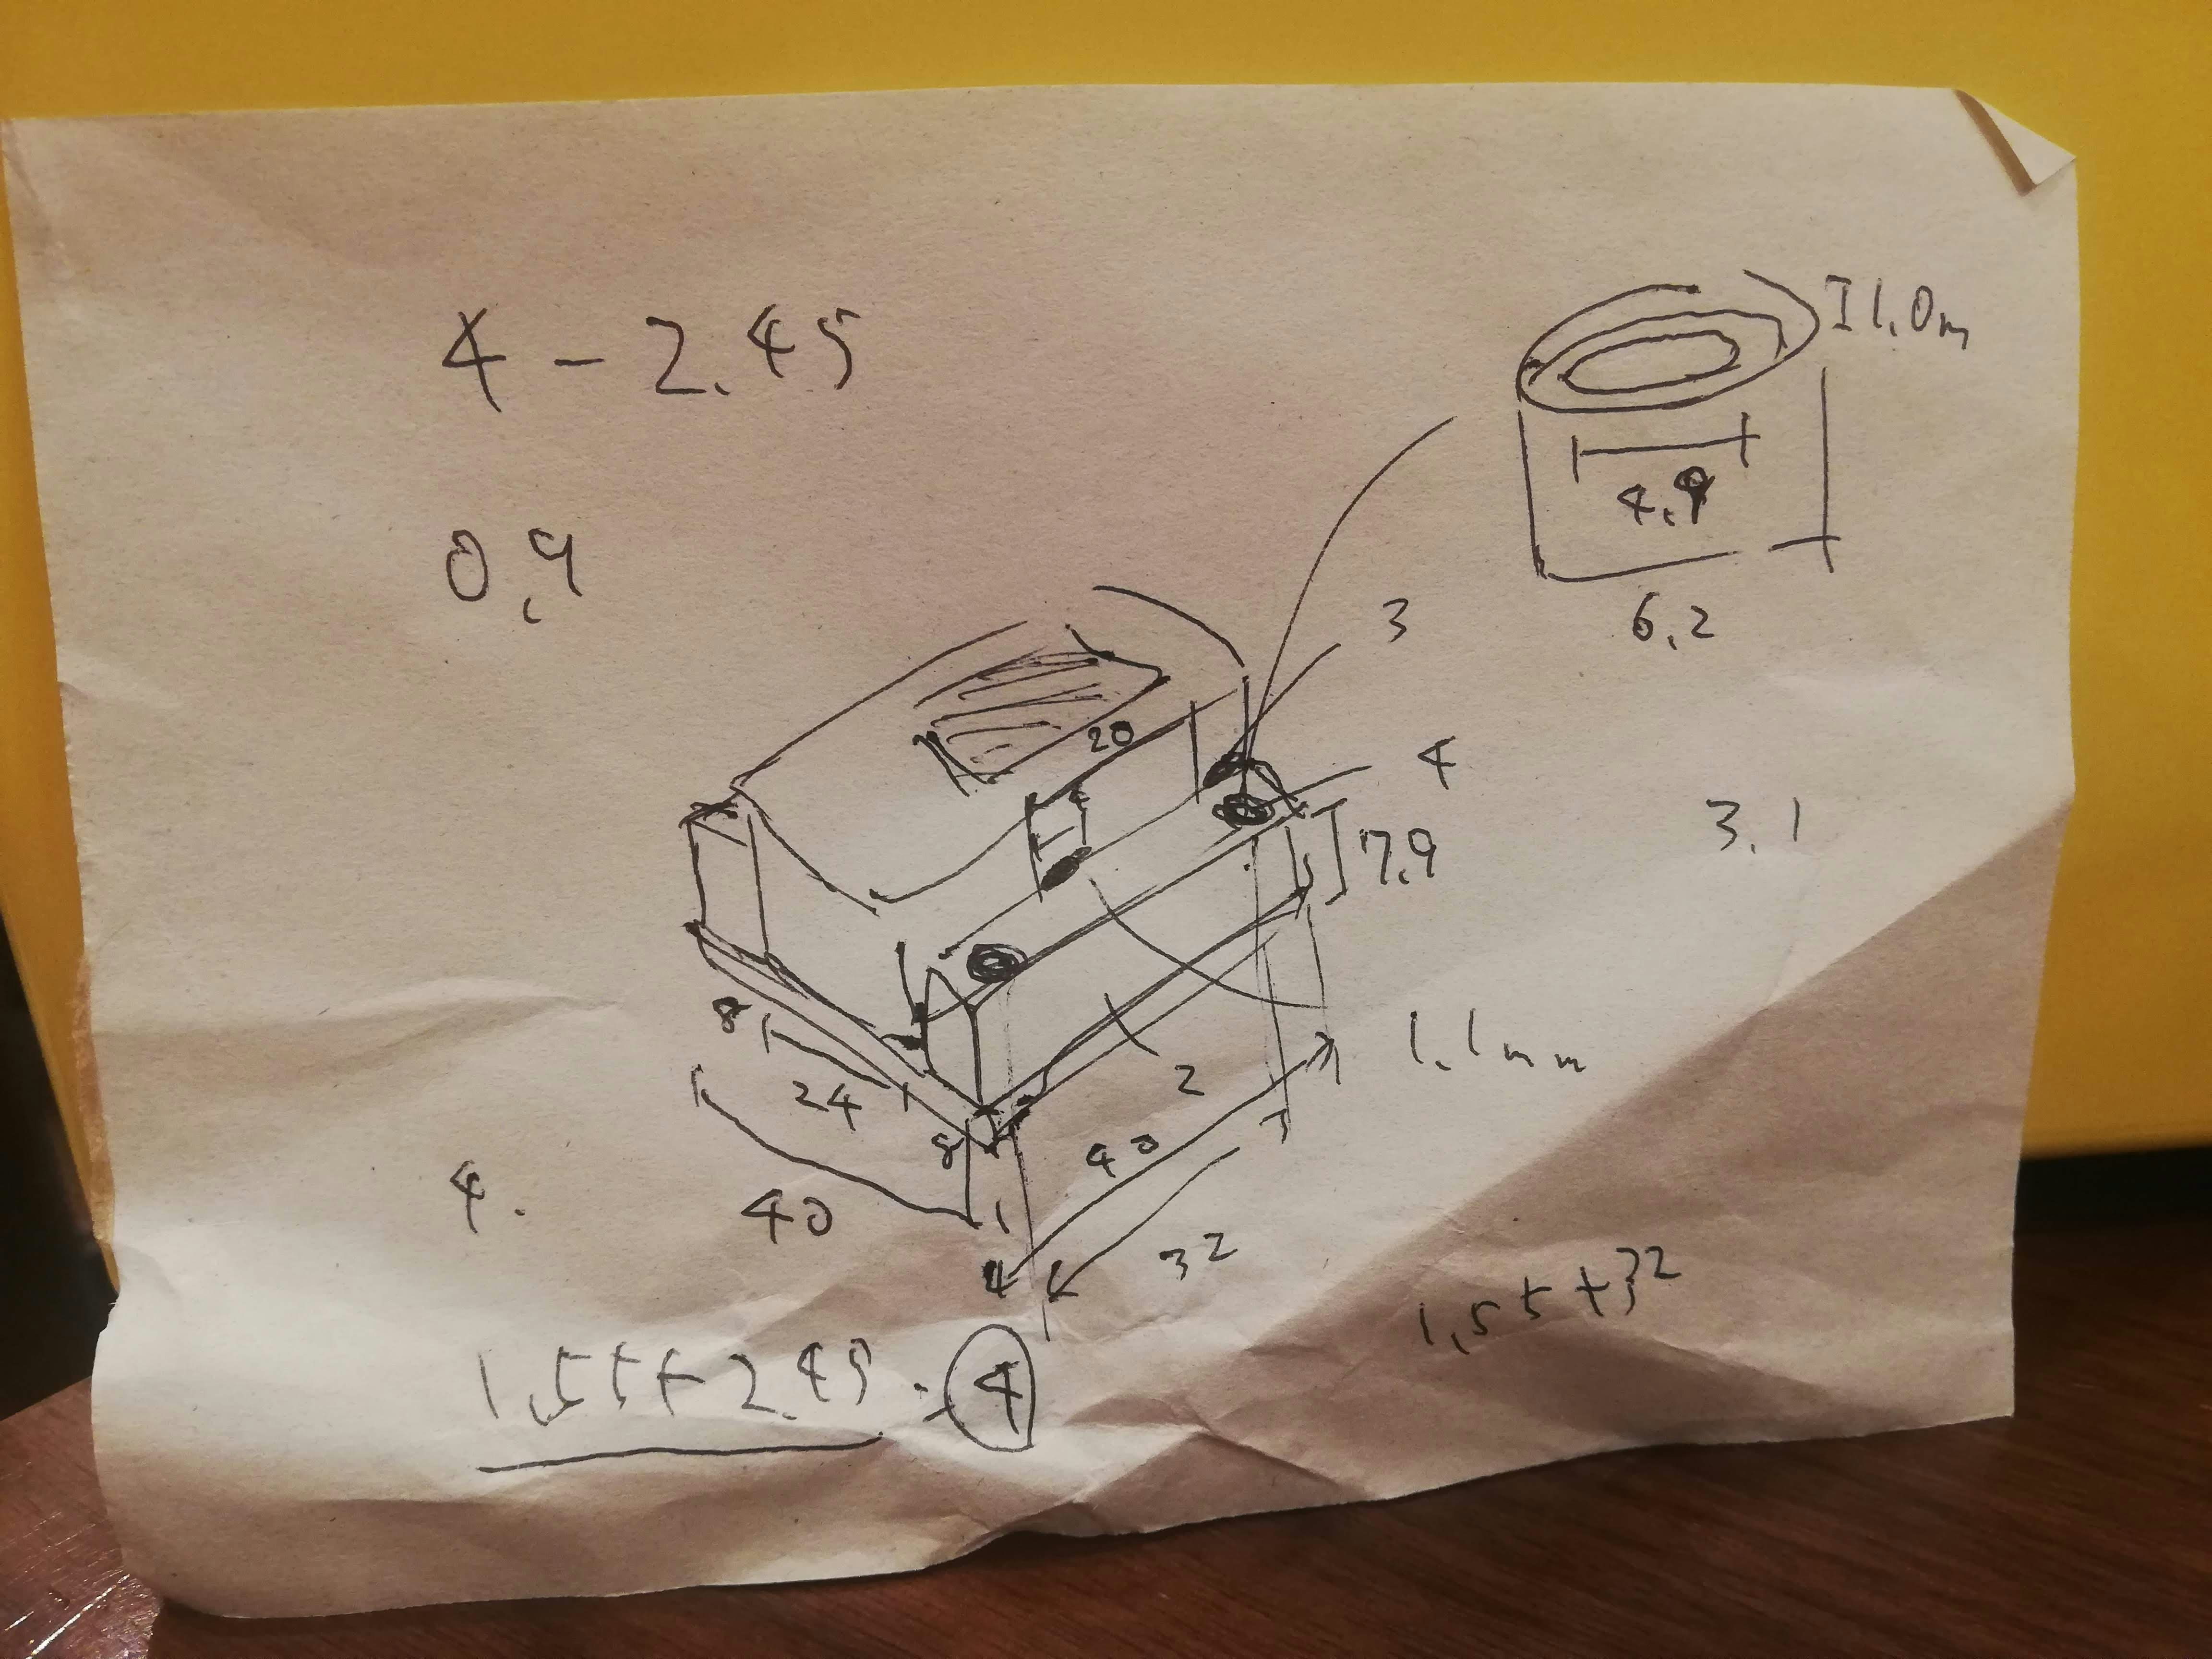 4 - 2.45
0.9
I 1.0m
4.9
6.2
3
20
4
7.9
3.1
8
24
8
2
1.1mm
40
40
4.
32
1.55+32
1.55+2.45 = 4